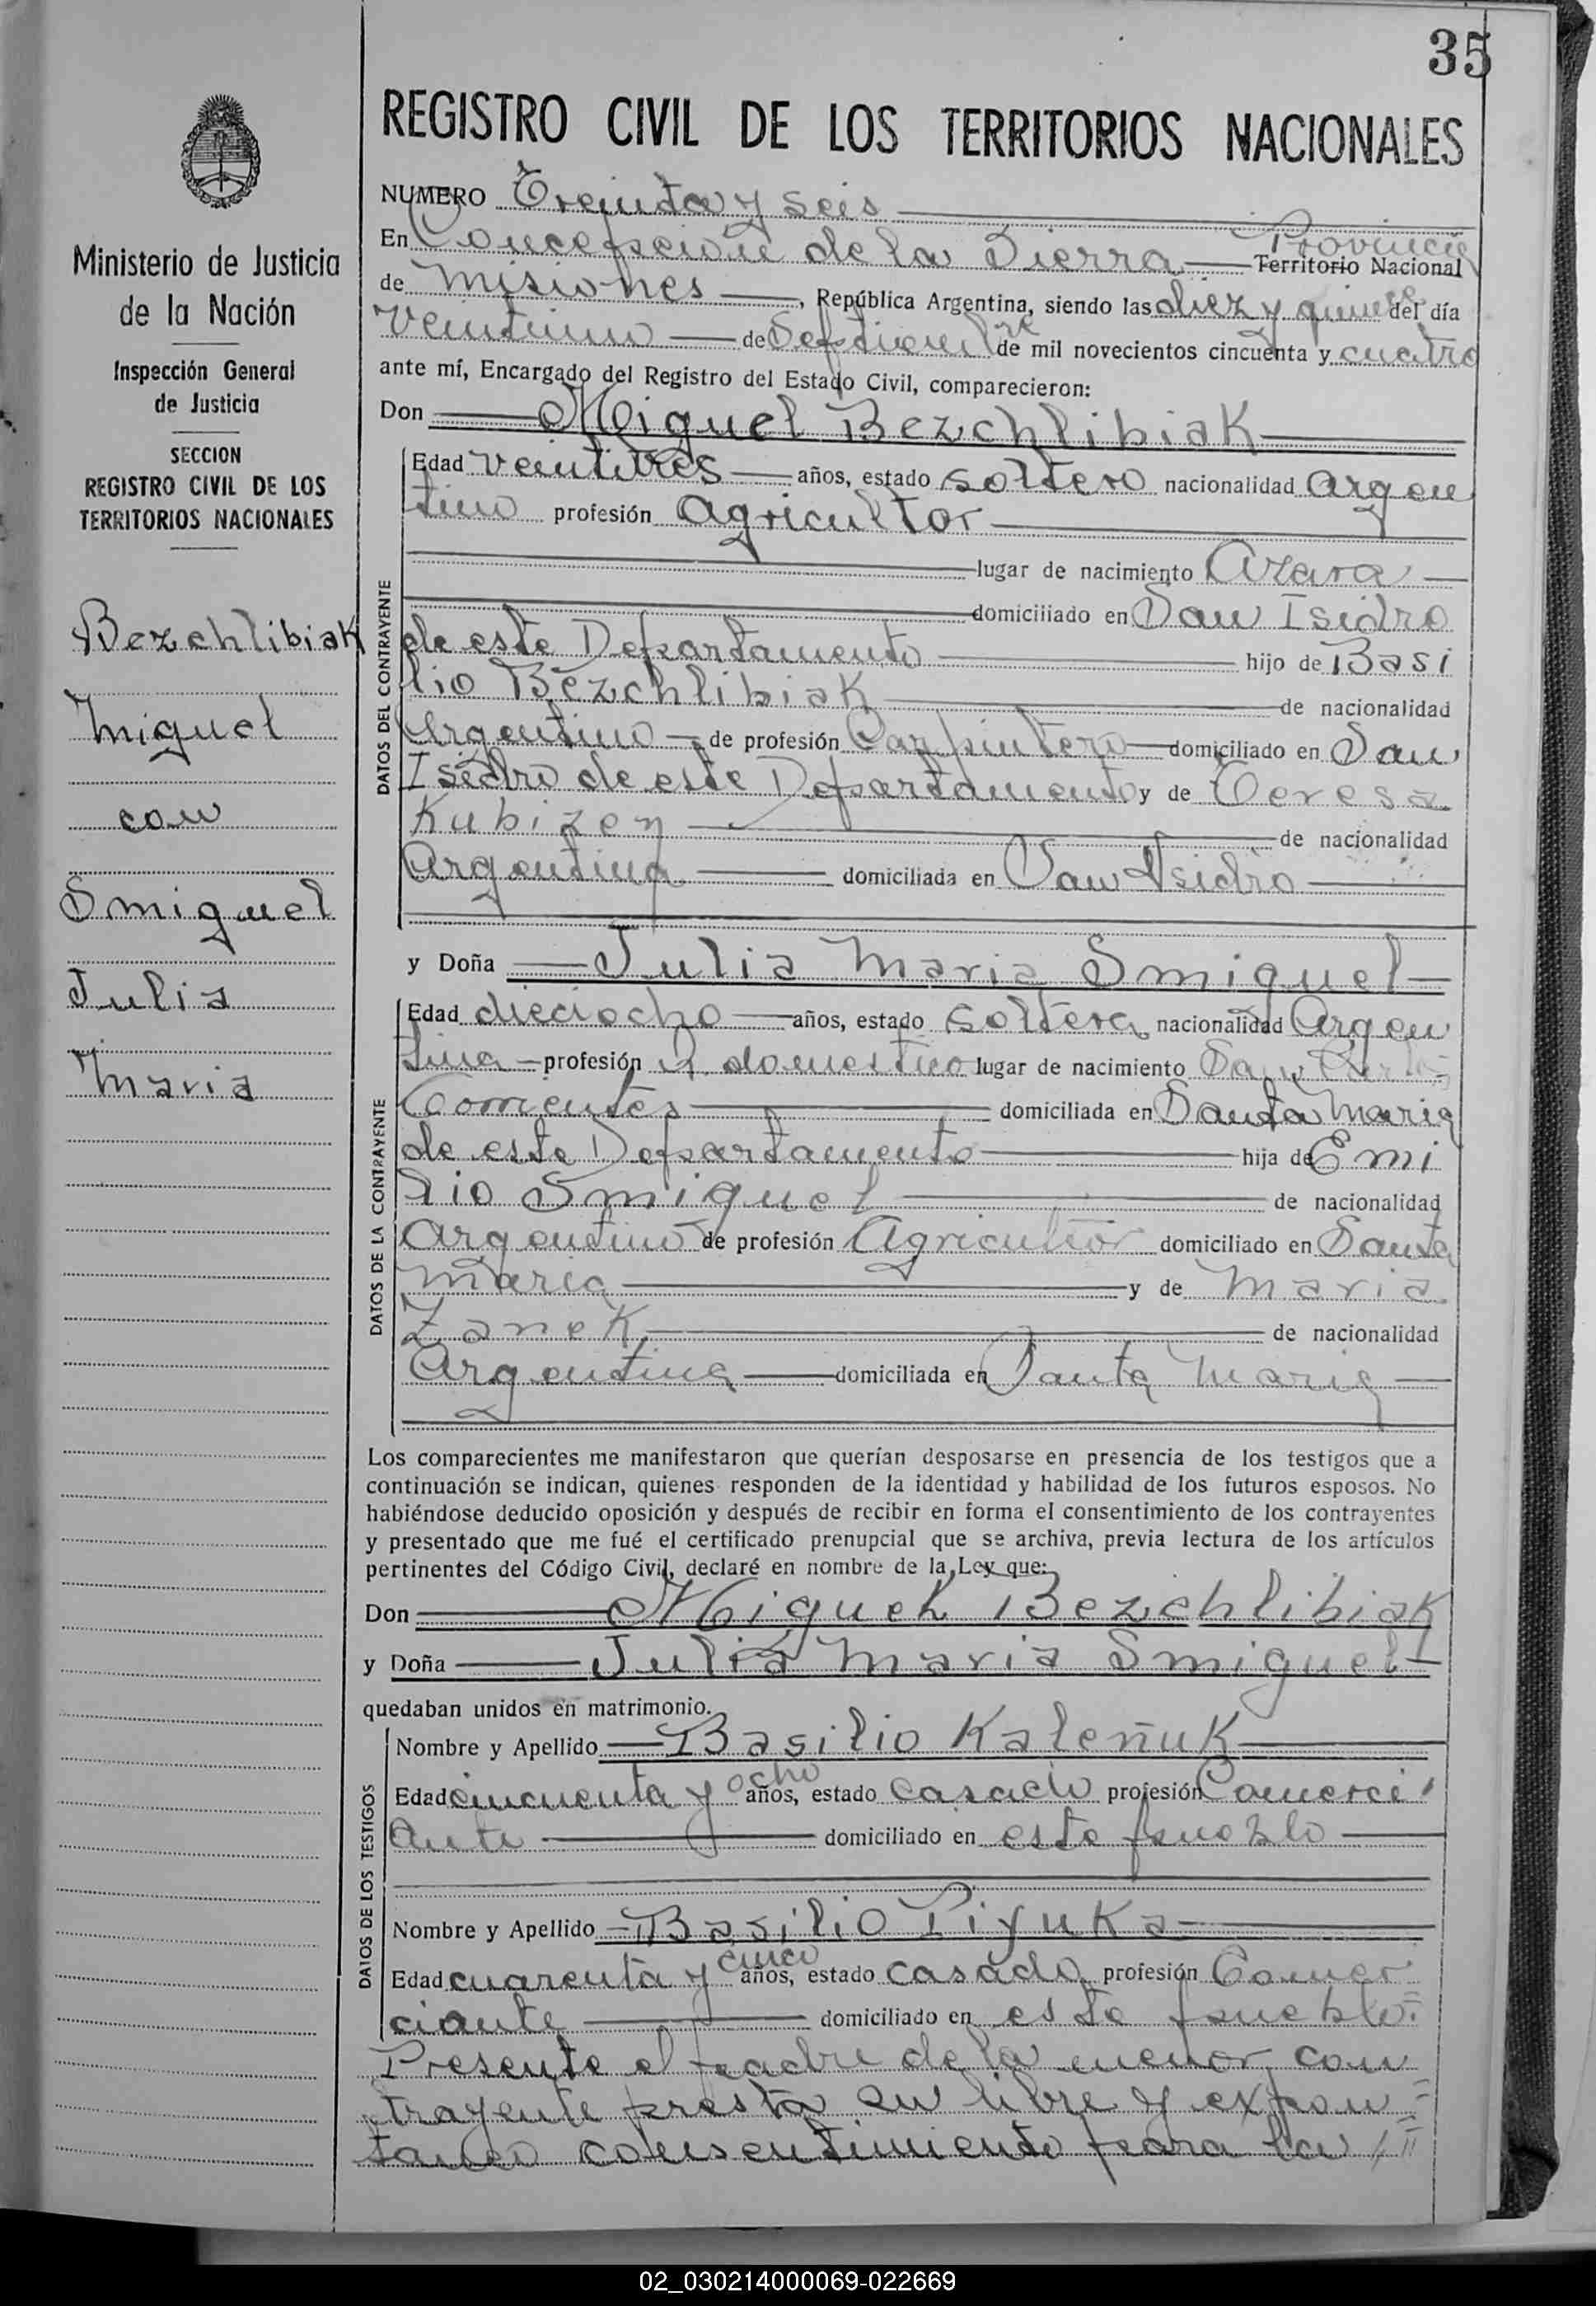 35
REGISTRO CIVIL DE LOS TERRITORIOS NACIONALES
Ministerio de Justicia
de la Nación
Inspección General
de Justicia
SECCION
REGISTRO CIVIL DE LOS
TERRITORIOS NACIONALES
Bezchlibiak
Miguel
con
Smiguel
Julia
Maria
NUMERO Treinta y seis
En Concepcion de la Sierra Provincia Territorio Nacional
de Misiones, República Argentina, siendo las diez y quince del día
veintiuno de Septiembre de mil novecientos cincuenta y cuatro
ante mí, Encargado del Registro del Estado Civil, comparecieron:
Don Miguel Bezchlibiak
DATOS DEL CONTRAYENTE
Edad veintitres años, estado soltero nacionalidad argen
tino profesión agricultor
lugar de nacimiento Azara
domiciliado en San Isidro
de este Departamento hijo de Basi
lio Bezchlibiak de nacionalidad
Argentino de profesión Carpintero domiciliado en San
Isidro de este Departamento y de Teresa
Kubizen de nacionalidad
Argentina domiciliada en San Isidro
y Doña Julia Maria Smiguel
DATOS DE LA CONTRAYENTE
Edad dieciocho años, estado soltera nacionalidad Argen
tina profesión Q. domestico lugar de nacimiento San Carlos
Corrientes domiciliada en Santa Maria
de este Departamento hija de Emi
lio Smiguel de nacionalidad
Argentino de profesión Agricultor domiciliado en Santa
Maria y de Maria
Zanek de nacionalidad
Argentina domiciliada en Santa Maria
Los comparecientes me manifestaron que querían desposarse en presencia de los testigos que a
continuación se indican, quienes responden de la identidad y habilidad de los futuros esposos. No
habiéndose deducido oposición y después de recibir en forma el consentimiento de los contrayentes
y presentado que me fué el certificado prenupcial que se archiva, previa lectura de los artículos
pertinentes del Código Civil, declaré en nombre de la Ley que:
Don Miguel Bezchlibiak
y Doña Julia Maria Smiguel
quedaban unidos en matrimonio.
DATOS DE LOS TESTIGOS
Nombre y Apellido Basilio Kaleñuk
Edad cincuenta y ocho años, estado casado profesión Comerci
ante domiciliado en este pueblo
Nombre y Apellido Basilio Piyuka
Edad cuarenta y cinco años, estado casado profesión Comer
ciante domiciliado en este pueblo.
Presente el padre de la menor con
trayente presta su libre y expon
taneo consentimiento para la
02_030214000069-022669